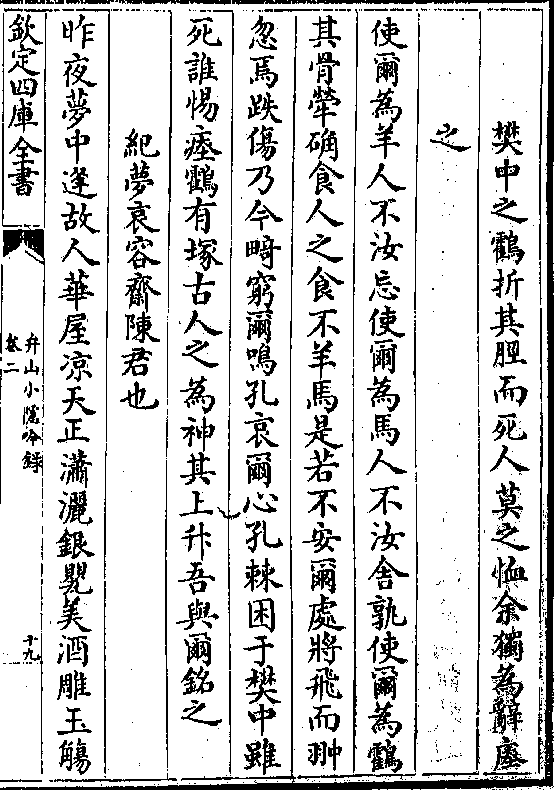 樊中之鸖折其脛而死人莫之恤余獨為辭瘞
之
使爾為羊人不汝忘使爾為馬人不汝舍孰使爾為鸖
其骨犖确食人之食不羊馬是若不安爾處將飛而翀
忽焉跌傷乃今畸窮爾鳴孔哀爾心孔棘困于樊中雖
死誰惕瘞鸖有塚古人之為神其上升吾與爾銘之
紀夢哀容齋陳君也
昨夜夢中逢故人華屋凉天正瀟灑銀甖美酒雕玉觴
欽定四庫全書
弁山小隱吟録
卷二
十九